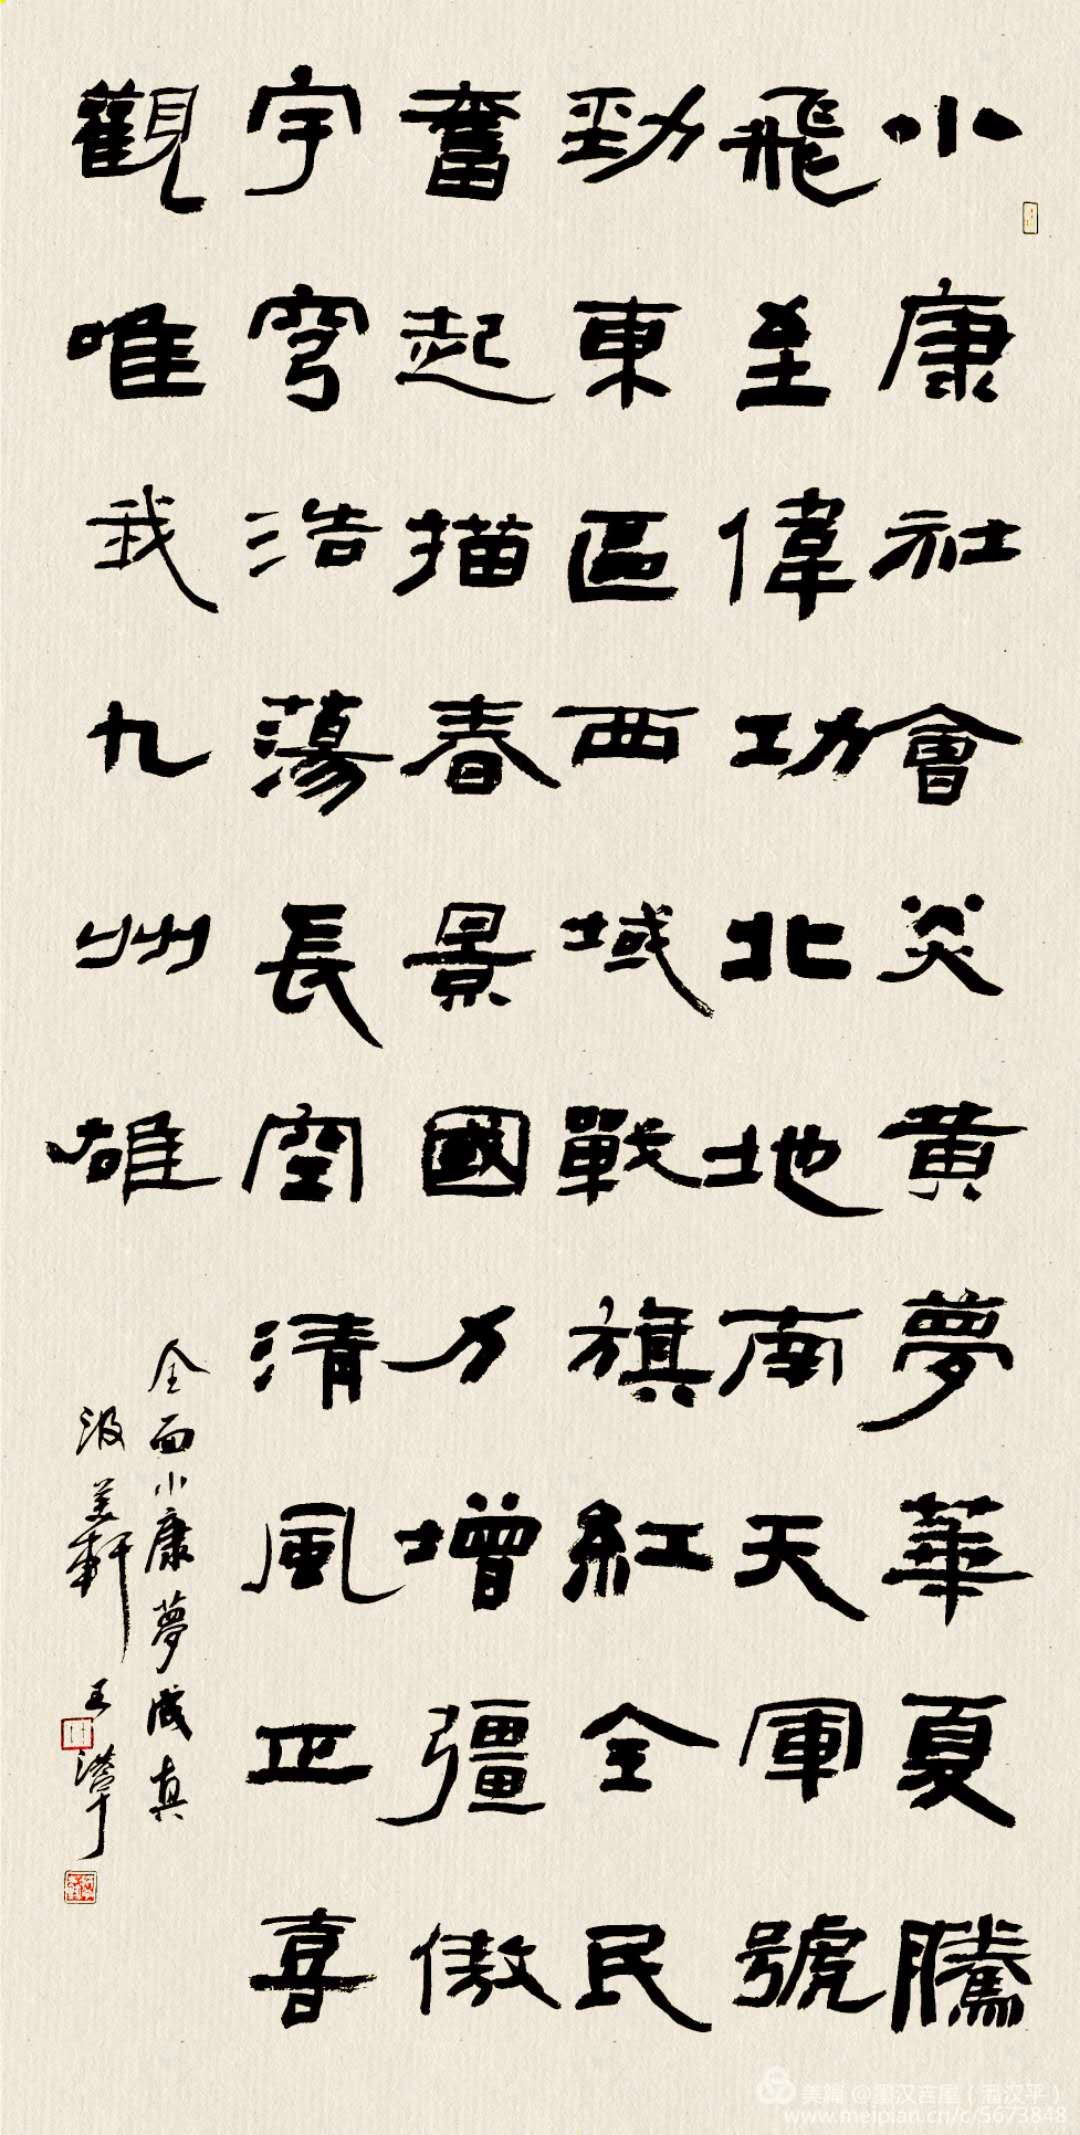 小康社會炎黃夢華夏騰
飛至偉功北地南天軍號
勁東區西域戰旗紅全民
奮起描春景國力增彊傲
宇穹浩蕩長空清風正喜
觀唯我九州雄
全面小康夢成真
汲美軒 王
美篇 @
(潘汉平)
www.meipian.cn/c/5673848